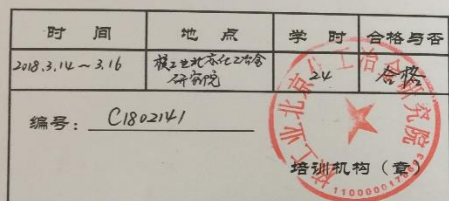 时 间 地 点 学 时 合格与否
2018.3.14~3.16 核工业北京化工冶金研究院 24 合格
编号: C1802141
核工业北京化工冶金研究院
培训机构（章）